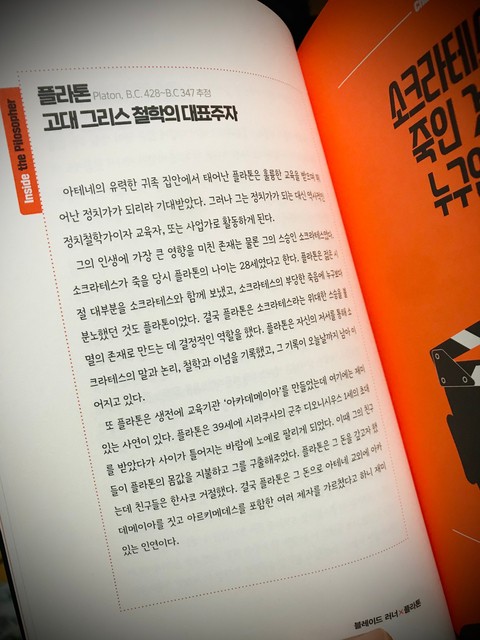 Inside the Pilosopher
플라톤 Platon, B.C. 428~B.C 347 추정
고대 그리스 철학의 대표주자
아테네의 유력한 귀족 집안에서 태어난 플라톤은 훌륭한 교육을 받으며
어난 정치가가 되리라 기대받았다. 그러나 그는 정치가가 되는 대신
정치철학가이자 교육자, 또는 사업가로 활동하게 된다.
그의 인생에 가장 큰 영향을 미친 존재는 물론 그의 스승인 소크라테스였다.
소크라테스가 죽을 당시 플라톤의 나이는 28세였다고 한다. 플라톤은 젊은 시
절 대부분을 소크라테스와 함께 보냈고, 소크라테스의 부당한 죽음에 누구보다
분노했던 것도 플라톤이었다. 결국 플라톤은 소크라테스라는 위대한 스승을 불
멸의 존재로 만드는 데 결정적인 역할을 했다. 플라톤은 자신의 저서를 통해 소
크라테스의 말과 논리, 철학과 이념을 기록했고, 그 기록이 오늘날까지 남아 이
어지고 있다.
또 플라톤은 생전에 교육기관 '아카데메이아'를 만들었는데 여기에는 재미
있는 사연이 있다. 플라톤은 39세에 시라쿠사의 군주 디오니시우스 1세의 초대
를 받았다가 사이가 틀어지는 바람에 노예로 팔리게 되었다. 이때 그의 친구
들이 플라톤의 몸값을 지불하고 그를 구출해주었다. 플라톤은 그 돈을 갚고자 했
는데 친구들은 한사코 거절했다. 결국 플라톤은 그 돈으로 아테네 교외에 아카
데메이아를 짓고 아르키메데스를 포함한 여러 제자를 가르쳤다고 하니 재미
있는 인연이다.
블레이드 러너×플라톤
소크라테
죽인
누구